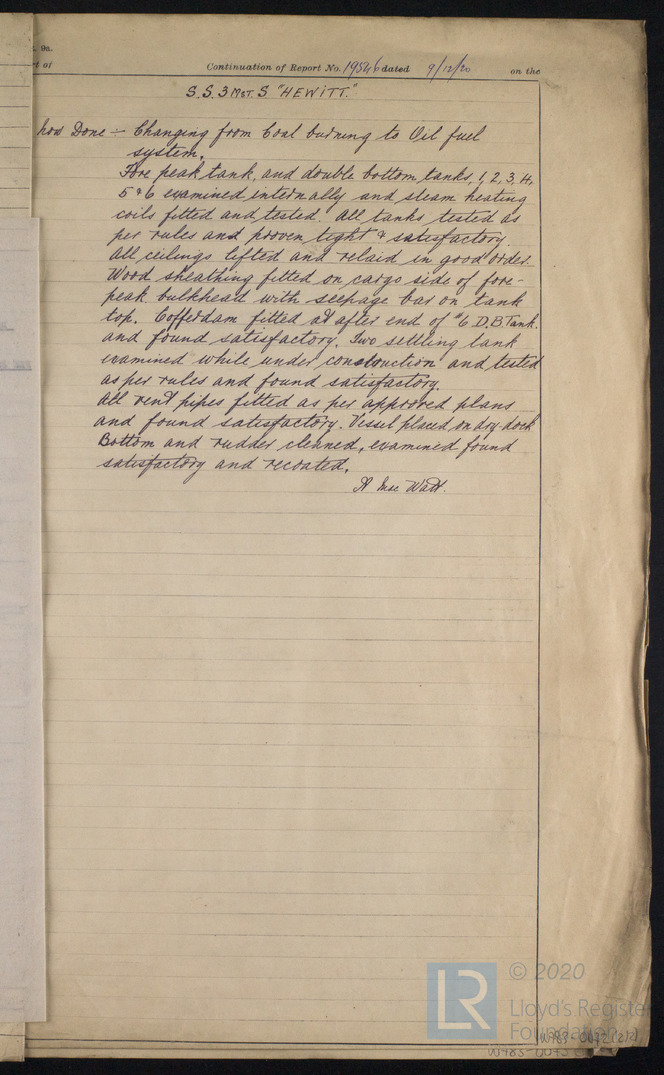 . 9a.
rt of
Continuation of Report No. 19546 dated 9/12/20 on the
S.S. 3 Mst. S "HEWITT."
now Done :- Changing from Coal burning to Oil fuel
system.
Fore peak tank, and double bottom tanks, 1, 2, 3, 4,
5 & 6 examined internally and steam heating
coils fitted and tested. All tanks tested as
per rules and proven tight & satisfactory.
All ceilings lifted and relaid in good order.
Wood sheathing fitted on cargo side of fore-
peak bulkhead with seepage bar on tank
top. Cofferdam fitted at after end of #6 D.B. Tank.
and found satisfactory. Two settling tank
examined while under construction and tested
as per rules and found satisfactory.
All vent pipes fitted as per approved plans
and found satisfactory. Vessel placed on dry dock
Bottom and rudder cleaned, examined found
satisfactory and recoated.
A Mac Watt.
LR
© 2020
Lloyd's Register
Foundation
W483-0072 (2/2)
W483-0073